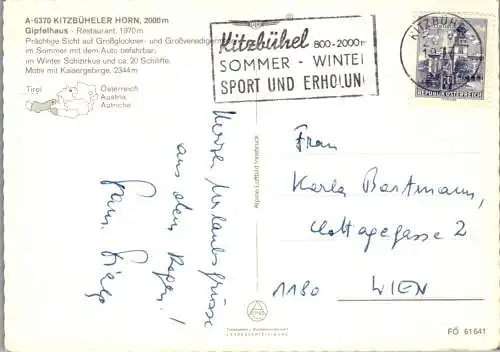 A-6370 KITZBÜHELER HORN, 2000 m
Gipfelhaus - Restaurant, 1970 m
Prächtige Sicht auf Großglockner- und Großvenediger
im Sommer mit dem Auto befahrbar;
im Winter Schizirkus und ca. 20 Schilifte.
Motiv mit Kaisergebirge, 2344 m
Tirol
Österreich
Austria
Autriche
Kitzbühel 800-2000 m
SOMMER - WINTE
SPORT UND ERHOLUN
KITZBÜHE
REPUBLIK ÖSTERREICH
Alpine Luftbild Innsbruck
Herzl. Urlaubsgrüsse
aus dem Regen!
Fam.
Frau
Karla Bartmann,
Cottagegasse 2
1180 WIEN
FÖ 61641